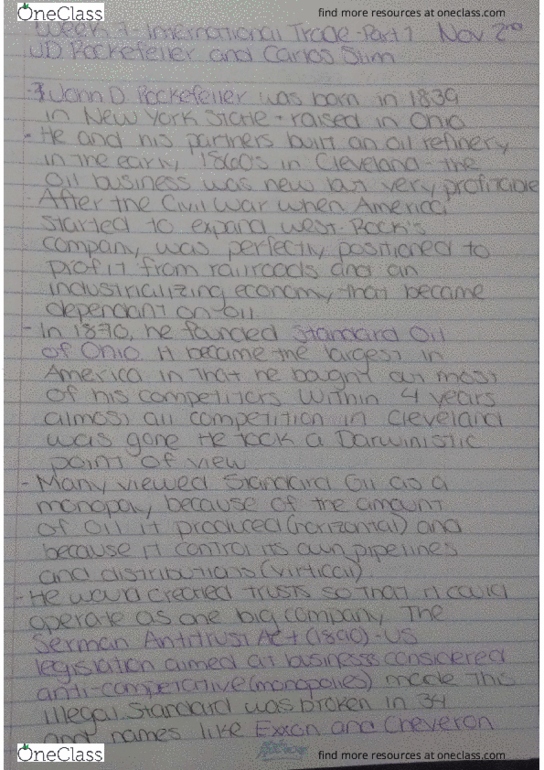 OneClass
find more resources at oneclass.com
Week 7 - International Trade - Part 1 Nov 2nd
JD Rockefeller and Carlos Slim
John D. Rockefeller was born in 1839
in New York State - raised in Ohio
- He and his partners built an oil refinery
in the early 1860s in Cleveland - the
oil business was new but very profitable
- After the Civil War when America
started to expand west. Rock's
company was perfectly positioned to
profit from railroads and an
industrializing economy that became
dependant on oil
- In 1870, he founded Standard Oil
of Ohio It became the largest in
America in that he bought out most
of his competitors within 4 years
almost all competition in Cleveland
was gone He took a Darwinistic
point of view
- Many viewed Standard Oil as a
monopoly because of the amount
of oil it produced (horizontal) and
because it control its own pipelines
and distributions (virtical)
- He would created trusts so that it could
operate as one big company The
Serman Antitrust Act (1890) - US
legislation aimed at business considered
anti-competative (monopolies) made this
illegal. Standard was broken in 34
and names like Exxon and Cheveron
OneClass
find more resources at oneclass.com